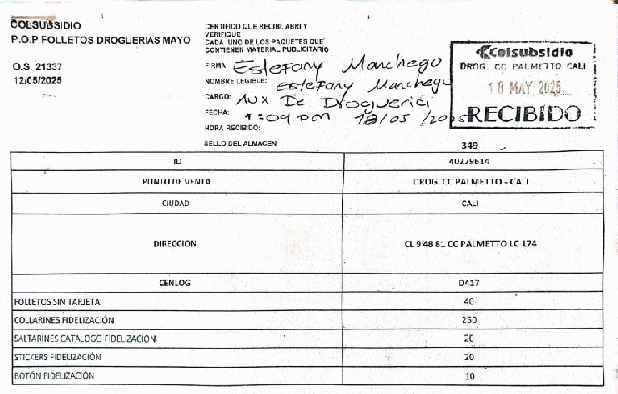 COLSUBSIDIO
P.O.P FOLLETOS DROGUERIAS MAYO
O.S. 21337
12/05/2025
CERTIFICO QUE RECIBI, ABRI Y
VERIFIQUE
CADA UNO DE LOS PAQUETES QUE
CONTIENEN MATERIAL PUBLICITARIO
FIRMA Estefany Manchego
NOMBRE LEGIBLE: Estefany Manchego
CARGO: Aux De Drogueria
FECHA: 1:09 pm 18/05/2025
HORA RECIBIDO:
SELLO DEL ALMACEN
Colsubsidio
DROG. CC PALMETTO CALI
18 MAY 2025
RECIBIDO
349
ID
PUNTO DE VENTA DROG. CC PALMETTO - CALI
CIUDAD CALI
DIRECCION CL 9 48 81 CC PALMETTO LC-174
CENLOG D417
FOLLETOS SIN TARJETA 40
COLLARINES FIDELIZACIÓN 250
SALTARINES CATALOGO FIDELIZACIÓN 20
STICKERS FIDELIZACIÓN 20
BOTÓN FIDELIZACIÓN 10